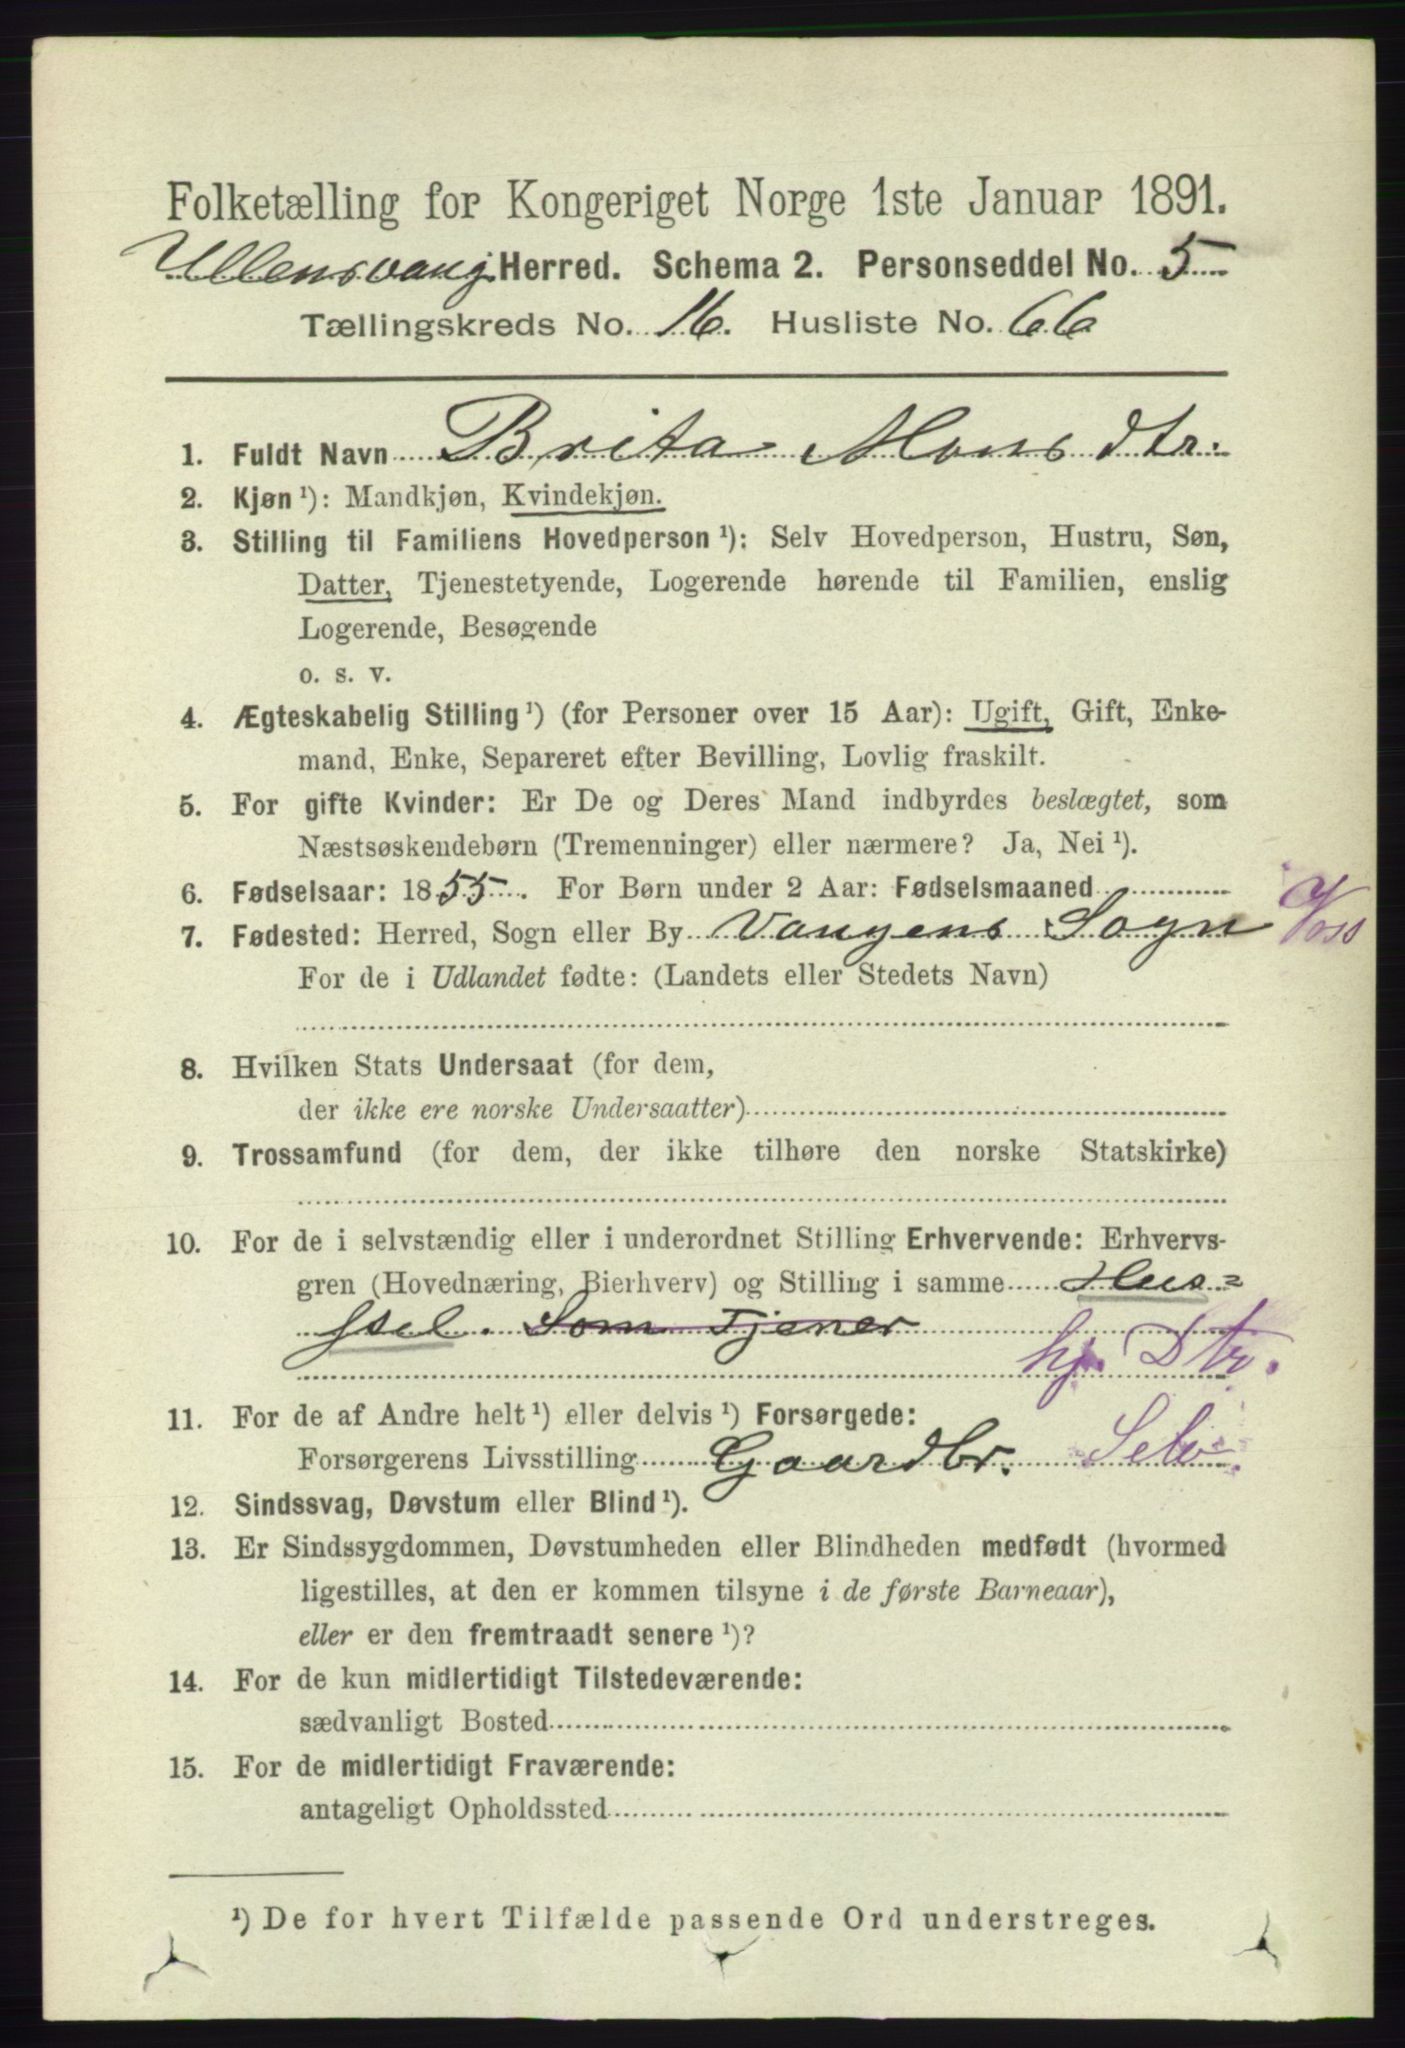 Folketælling for Kongeriget Norge 1ste Januar 1891.
Ullensvang Herred. Schema 2. Personseddel No. 5
Tællingskreds No. 16. Husliste No. 66
1. Fuldt Navn Brita Monsdtr.
2. Kjøn ¹): Mandkjøn, Kvindekjøn.
3. Stilling til Familiens Hovedperson ¹): Selv Hovedperson, Hustru, Søn,
Datter, Tjenestetyende, Logerende hørende til Familien, enslig
Logerende, Besøgende
o. s. v.
4. Ægteskabelig Stilling ¹) (for Personer over 15 Aar): Ugift, Gift, Enke-
mand, Enke, Separeret efter Bevilling, Lovlig fraskilt.
5. For gifte Kvinder: Er De og Deres Mand indbyrdes beslægtet, som
Næstsøskendebørn (Tremenninger) eller nærmere? Ja, Nei ¹).
6. Fødselsaar: 1855. For Børn under 2 Aar: Fødselsmaaned
7. Fødested: Herred, Sogn eller By Vangens Sogn Voss
For de i Udlandet fødte: (Landets eller Stedets Navn)
8. Hvilken Stats Undersaat (for dem,
der ikke ere norske Undersaatter)
9. Trossamfund (for dem, der ikke tilhøre den norske Statskirke)
10. For de i selvstændig eller i underordnet Stilling Erhvervende: Erhvervs-
gren (Hovednæring, Bierhverv) og Stilling i samme Hus=
stel. Som Tjener
hj. Dtr.
11. For de af Andre helt ¹) eller delvis ¹) Forsørgede:
Forsørgerens Livsstilling Gaardbr. Selv.
12. Sindssvag, Døvstum eller Blind ¹).
13. Er Sindssygdommen, Døvstumheden eller Blindheden medfødt (hvormed
ligestilles, at den er kommen tilsyne i de første Barneaar),
eller er den fremtraadt senere ¹)?
14. For de kun midlertidigt Tilstedeværende:
sædvanligt Bosted
15. For de midlertidigt Fraværende:
antageligt Opholdssted
¹) De for hvert Tilfælde passende Ord understreges.